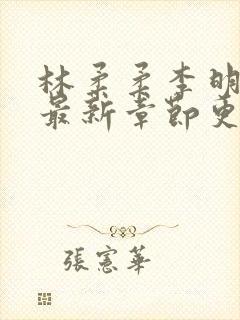 林柔柔李明
最新章節更
張憲華